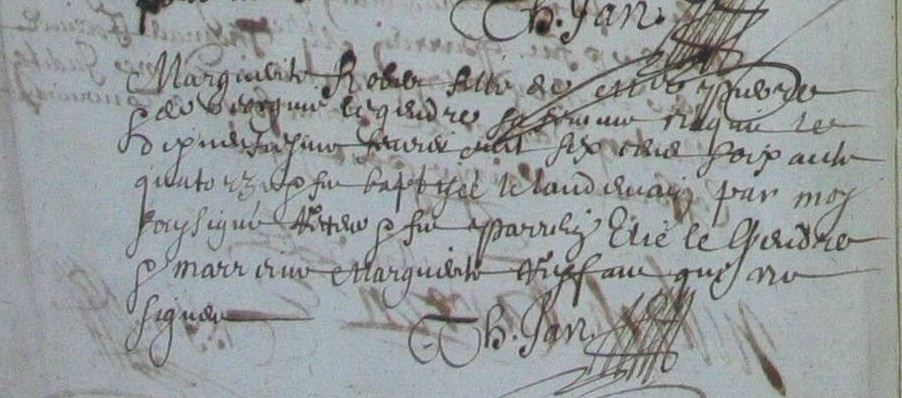 Th. Jan.
Marguerite Rober fille de
& de legendre sa femme naquit le
dixneufiesme feurier mil six cens soixante
quatorze & fut baptisée le landemain par moy
soussigné & fut parrein Elie le Gendre
& marreine Marguerite qui ne
signer
Th. Jan